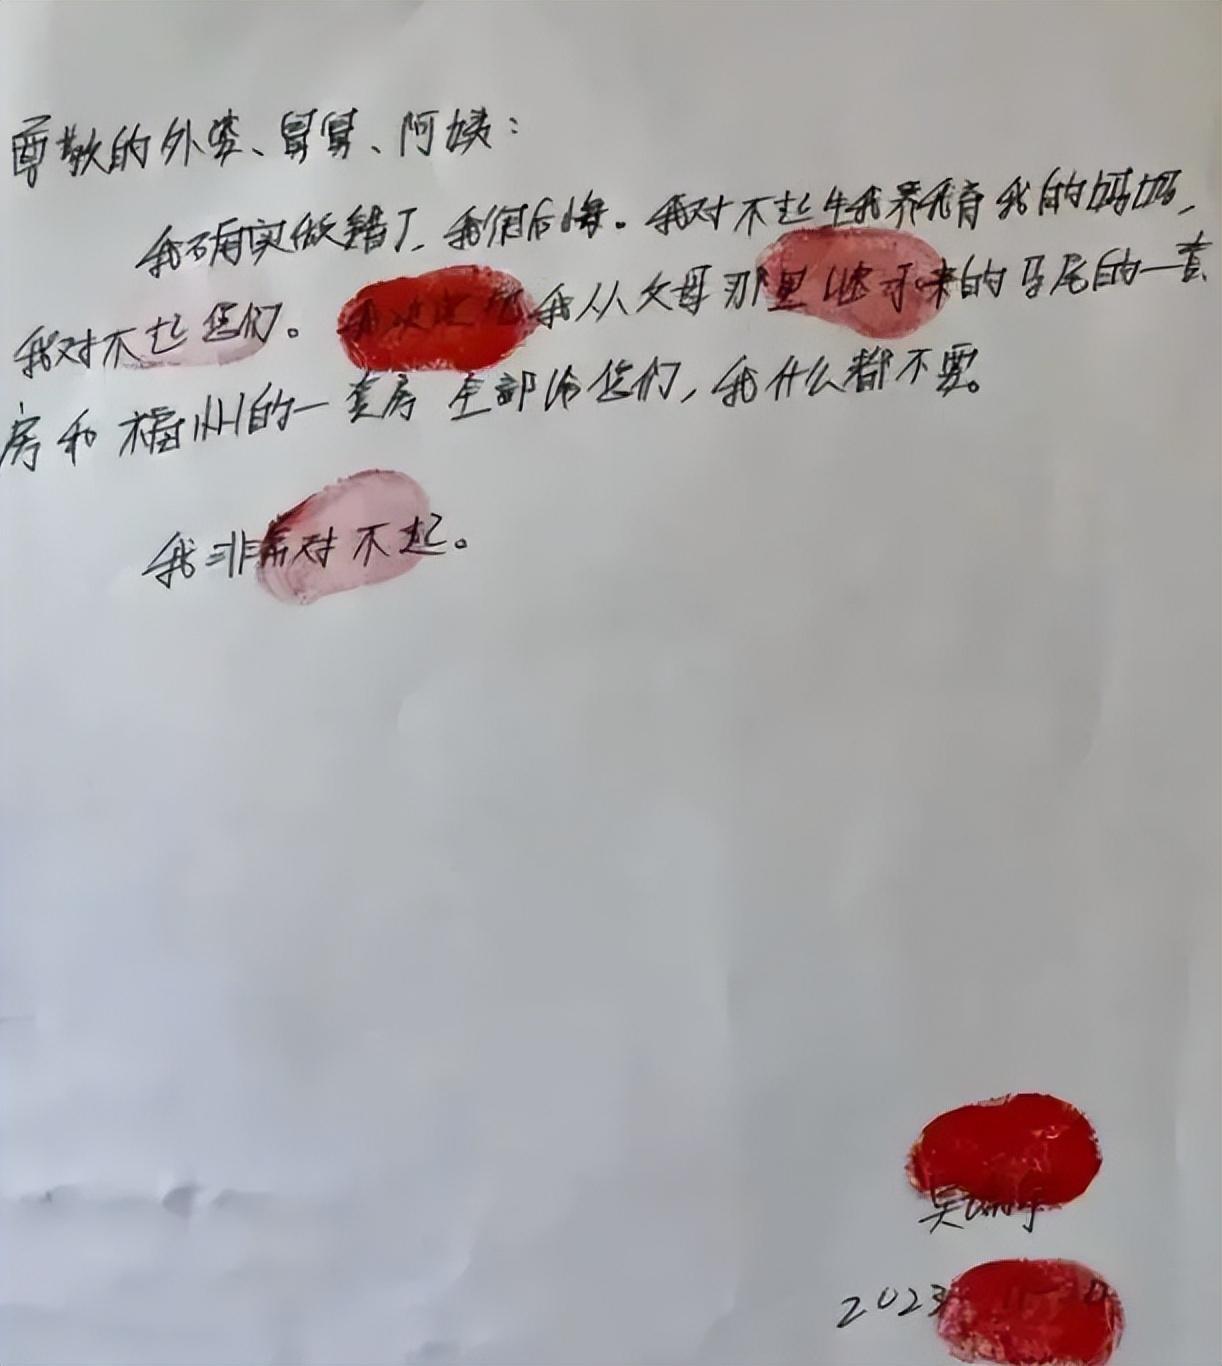 尊敬的外婆、舅舅、阿姨：
我确实做错了，我很后悔。我对不起生我养我育我的妈妈，
我对不起您们。我决定把我从父母那里继承来的马尾的一套
房和福州的一套房全部给您们，我什么都不要。
我非常对不起。
吴
2023